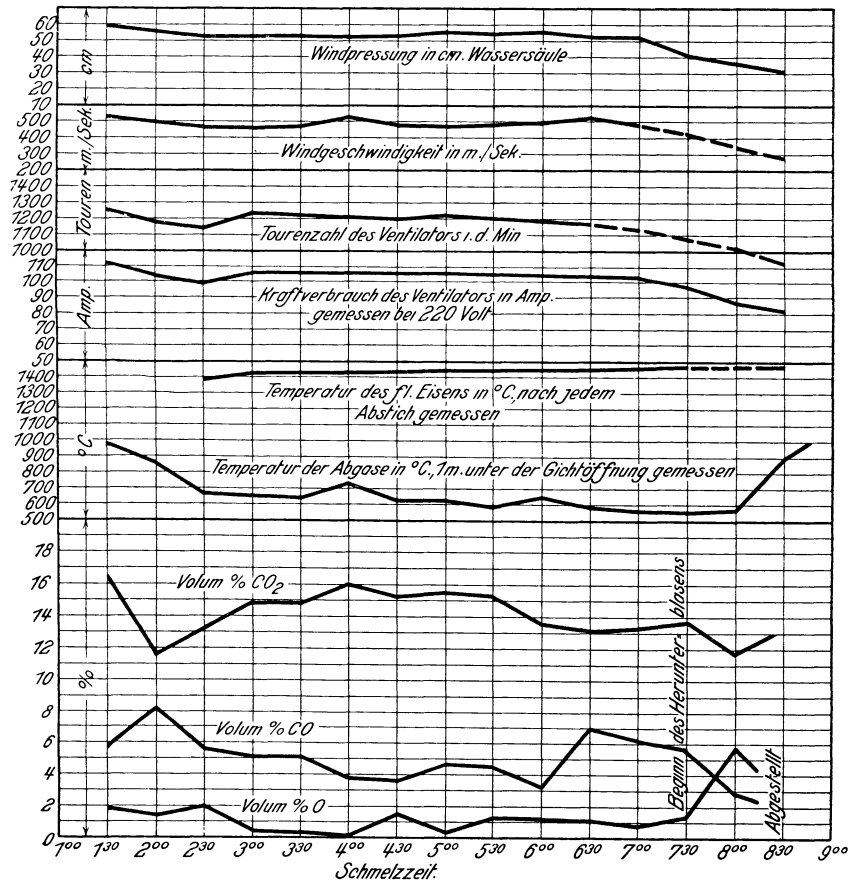 60
50
40
30
20
10
cm
Windpressung in cm. Wassersäule
500
400
300
200
m./Sek.
Windgeschwindigkeit in m./Sek.
1400
1300
1200
1100
1000
Touren
Tourenzahl des Ventilators i.d. Min
110
100
90
80
70
60
50
Amp.
Kraftverbrauch des Ventilators in Amp.
gemessen bei 220 Volt
1400
1300
1200
1100
1000
900
800
700
600
500
°C
Temperatur des fl. Eisens in °C, nach jedem
Abstich gemessen
Temperatur der Abgase in °C, 1m. unter der Gichtöffnung gemessen
18
16
14
12
10
8
6
4
2
0
%
Volum % CO₂
Volum % CO
Volum % O
Beginn des Herunter- blasens
Abgestellt
1⁰⁰ 1³⁰ 2⁰⁰ 2³⁰ 3⁰⁰ 3³⁰ 4⁰⁰ 4³⁰ 5⁰⁰ 5³⁰ 6⁰⁰ 6³⁰ 7⁰⁰ 7³⁰ 8⁰⁰ 8³⁰ 9⁰⁰
Schmelzzeit.